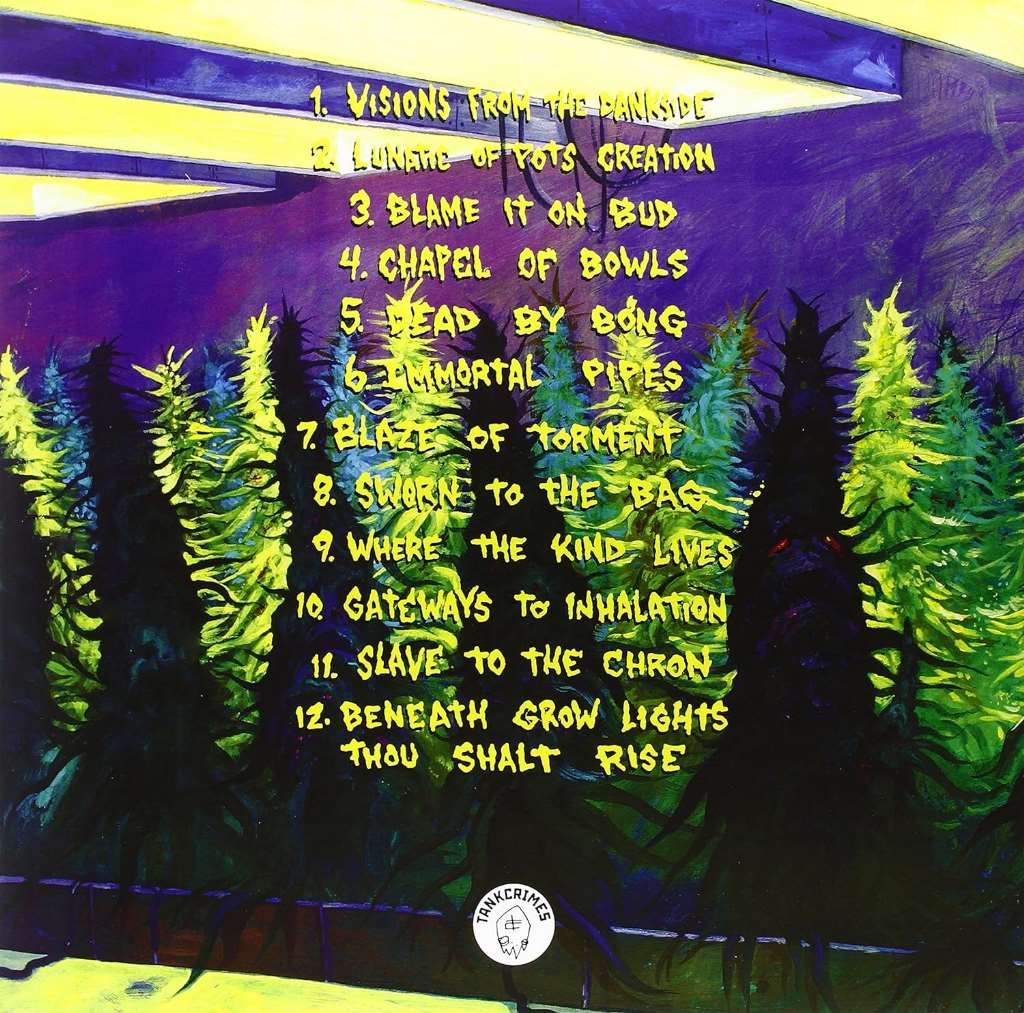 1. VISIONS FROM THE DANKSIDE
2. LUNATIC OF POTS CREATION
3. BLAME IT ON BUD
4. CHAPEL OF BOWLS
5. DEAD BY BONG
6. IMMORTAL PIPES
7. BLAZE OF TORMENT
8. SWORN TO THE BAG
9. WHERE THE KIND LIVES
10. GATEWAYS TO INHALATION
11. SLAVE TO THE CHRON
12. BENEATH GROW LIGHTS
THOU SHALT RISE
TANKCRIMES